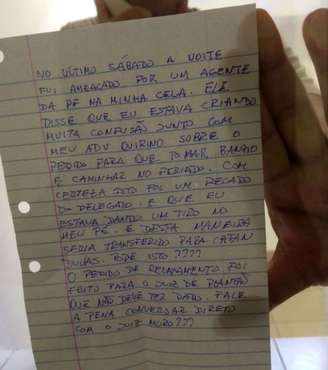 NO ÚLTIMO SÁBADO A NOITE
FUI AMEAÇADO POR UM AGENTE
DA PF NA MINHA CELA. ELE
DISSE QUE EU ESTAVA CRIANDO
MUITA CONFUSÃO JUNTO COM
MEU ADV QUIRINO SOBRE O
PEDIDO PARA QUE TOMAR BANHO
E CAMINHAR NO FERIADO. COM
CERTEZA ISTO FOI UM RECADO
DO DELEGADO. E QUE EU
ESTAVA DANDO UM TIRO NO
MEU PÉ. E DESTA MANEIRA
SERIA TRANSFERIDO PARA CATAN
DUVAS. PODE ISTO????
O PEDIDO DE RELAXAMENTO FOI
FEITO PARA O JUIZ DE PLANTÃO
QUE NÃO DEVE TER DADO. VALE
A PENA CONVERSAR DIRETO
COM O JUIZ MORO???